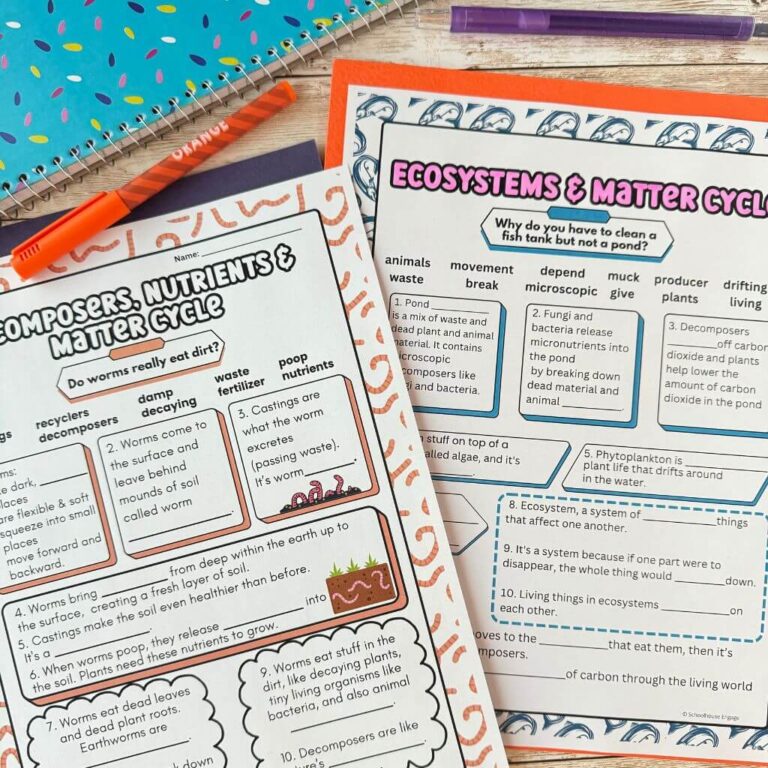 ORANGE
Name:
COMPOSERS, NUTRIENTS &
MATTER CYCLE
Do worms really eat dirt?
recyclers damp waste poop
gs decomposers decaying fertilizer nutrients
ms:
e dark,
laces
are flexible & soft
squeeze into small
places
move forward and
backward.
2. Worms come to
the surface and
leave behind
mounds of soil
called worm
3. Castings are
what the worm
excretes
(passing waste).
It's worm
4. Worms bring from deep within the earth up to
the surface, creating a fresh layer of soil.
5. Castings make the soil even healthier than before.
It's a
6. When worms poop, they release into
the soil. Plants need these nutrients to grow.
7. Worms eat dead leaves
and dead plant roots.
Earthworms are
k down
9. Worms eat stuff in the
dirt, like decaying plants,
tiny living organisms like
bacteria, and also animal
10. Decomposers are like
ure's
ECOSYSTEMS & MATTER CYCL
Why do you have to clean a
fish tank but not a pond?
animals movement depend muck producer drifting
waste break microscopic give plants living
1. Pond
is a mix of waste and
dead plant and animal
material. It contains
microscopic
composers like
gi and bacteria.
2. Fungi and
bacteria release
micronutrients into
the pond
by breaking down
dead material and
animal
3. Decomposers
off carbon
dioxide and plants
help lower the
amount of carbon
dioxide in the pond
stuff on top of a
alled algae, and it's
5. Phytoplankton is
plant life that drifts around
in the water.
8. Ecosystem, a system of things
that affect one another.
9. It's a system because if one part were to
disappear, the whole thing would down.
10. Living things in ecosystems on
each other.
oves to the that eat them, then it's
mposers.
of carbon through the living world
© Schoolhouse Engage